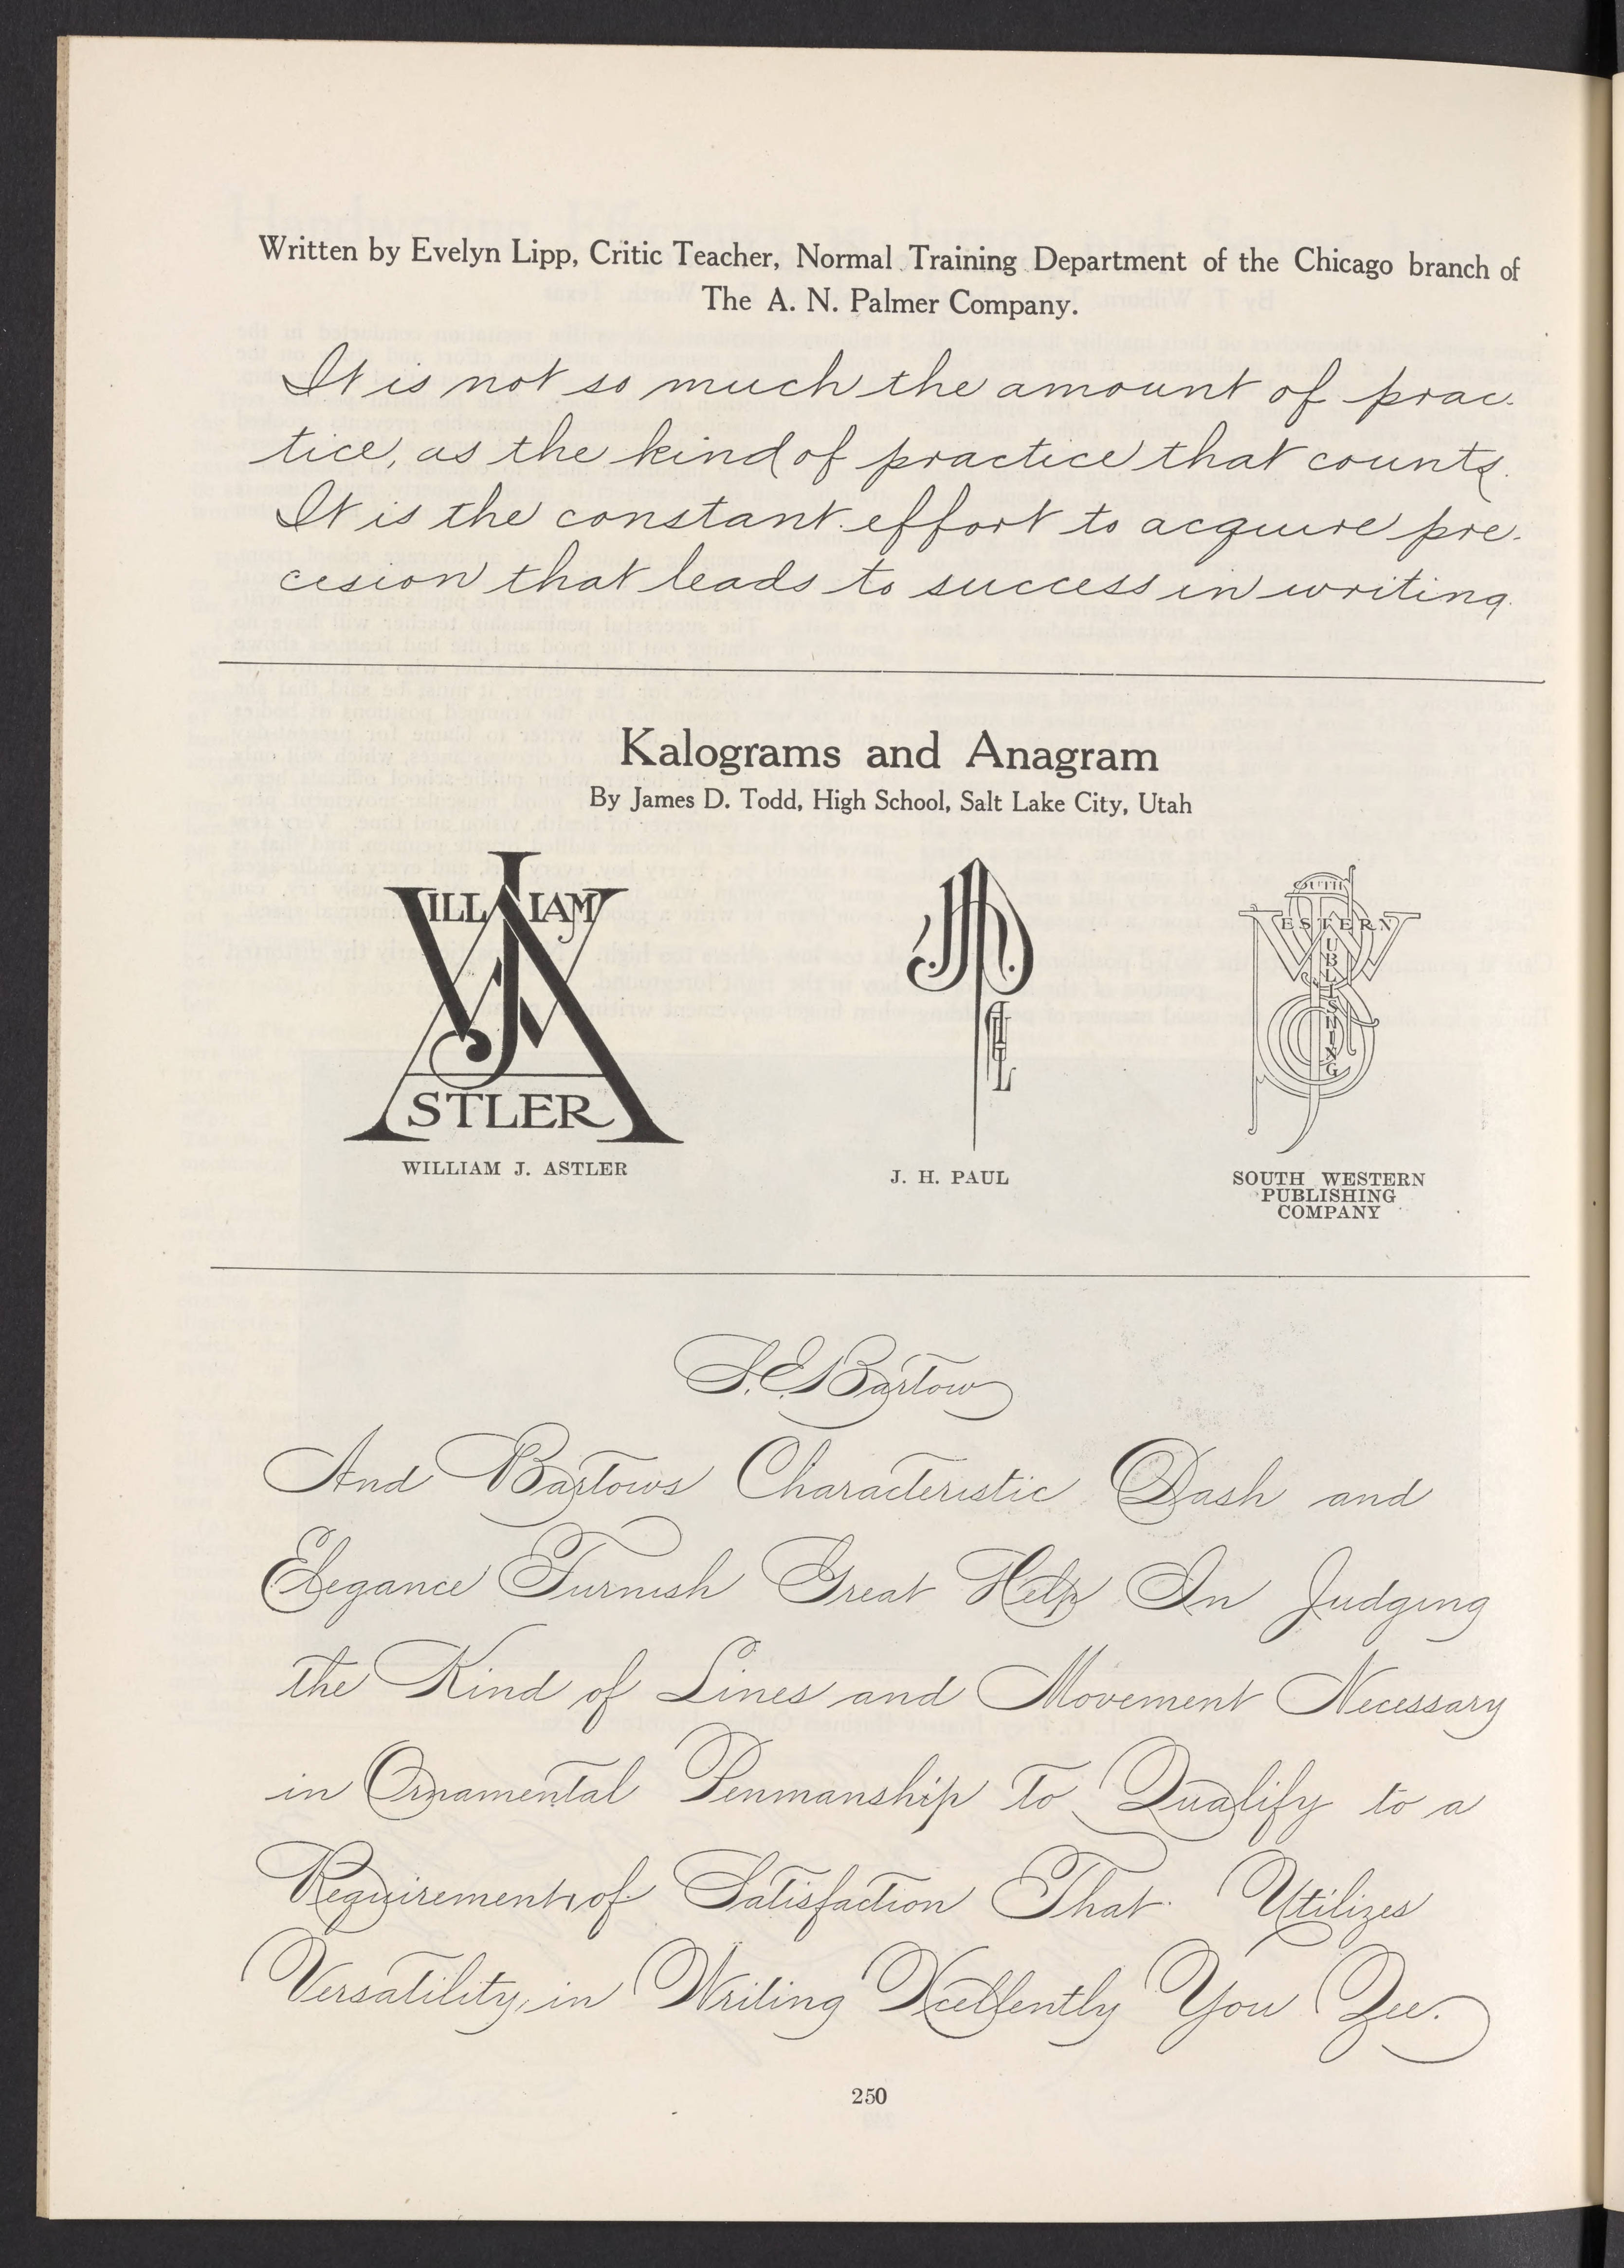 Written by Evelyn Lipp, Critic Teacher, Normal Training Department of the Chicago branch of
The A. N. Palmer Company.
It is not so much the amount of prac-
tice, as the kind of practice that counts.
It is the constant effort to acquire pre-
cision that leads to success in writing
Kalograms and Anagram
By James D. Todd, High School, Salt Lake City, Utah
WILLIAM J ASTLER
JHPAUL
SOUTH WESTERN PUBLISHING CO
WILLIAM J. ASTLER
J. H. PAUL
SOUTH WESTERN
PUBLISHING
COMPANY
S. E. Bartow
And Bartows Characteristic Dash and
Elegance Furnish Great Help In Judging
the Kind of Lines and Movement Necessary
in Ornamental Penmanship To Qualify to a
Requirement of Satisfaction That Utilizes
Versatility, in Writing Xcellently You Zee.
250